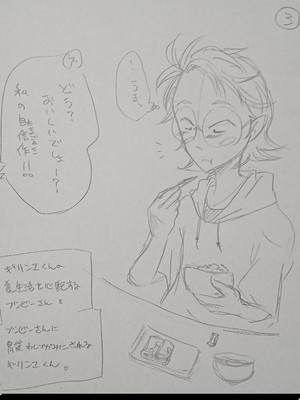 ③
…うま、
⑦
どう？
おいしいでしょー？
私の自信作!!
ギリンマくんの
食生活を心配する
ブンビーさんと
ブンビーさんに
胃袋わしづかみにされる
ギリンマくん。